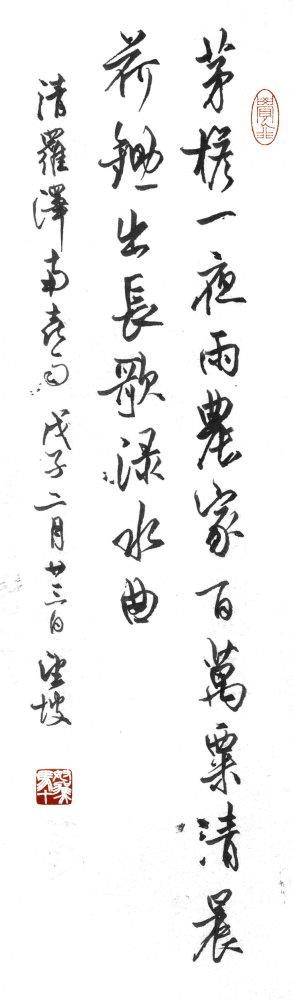 茅檐一夜雨農家百萬粟清晨
荷鋤出長歌渌水曲
清羅澤南喜雨 戊子二月廿三日 望坡